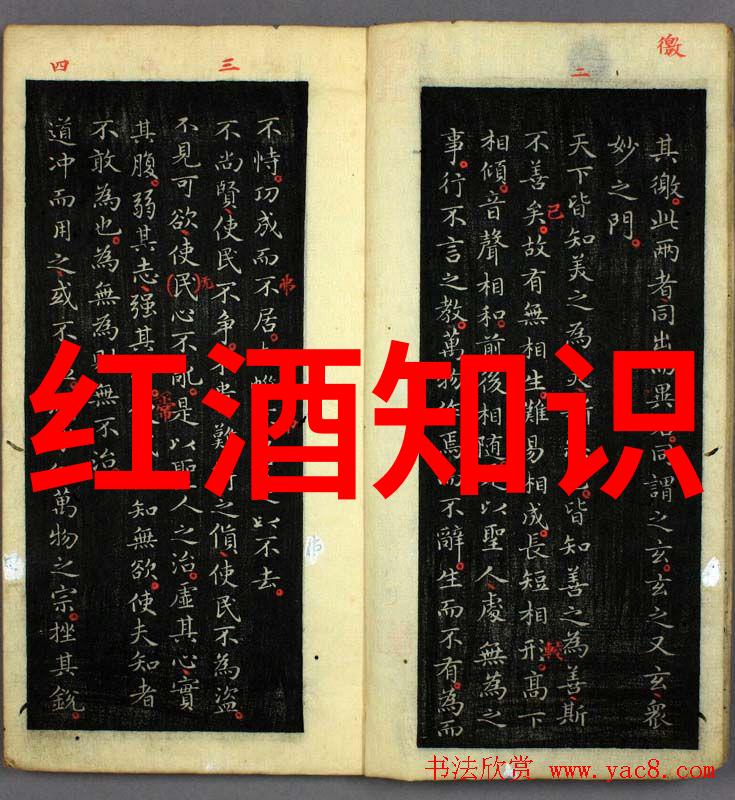 徼
二
其徼。此兩者、同出而異名。同謂之玄。玄之又玄、衆
妙之門。
天下皆知美之為美 皆知善之為善斯
不善矣。故有無相生。難易相成。長短相形。高下
已
較
相傾。音聲相和。前後相随。是以聖人處無為之
事。行不言之教。萬物作焉而不辭。生而不有。為而
三
四
不恃。功成而不居。 以不去。
不尚賢、使民不争。不貴難得之貨、使民不為盜。
不見可欲、使(民)心不亂。是以聖人之治。虛其心、實
无
其腹。弱其志、强其 知無欲。使夫知者
不敢為也。為無為則無不治
道冲而用之、或不 萬物之宗。挫其銳。
红酒知识
书法欣赏 www.yac8.com